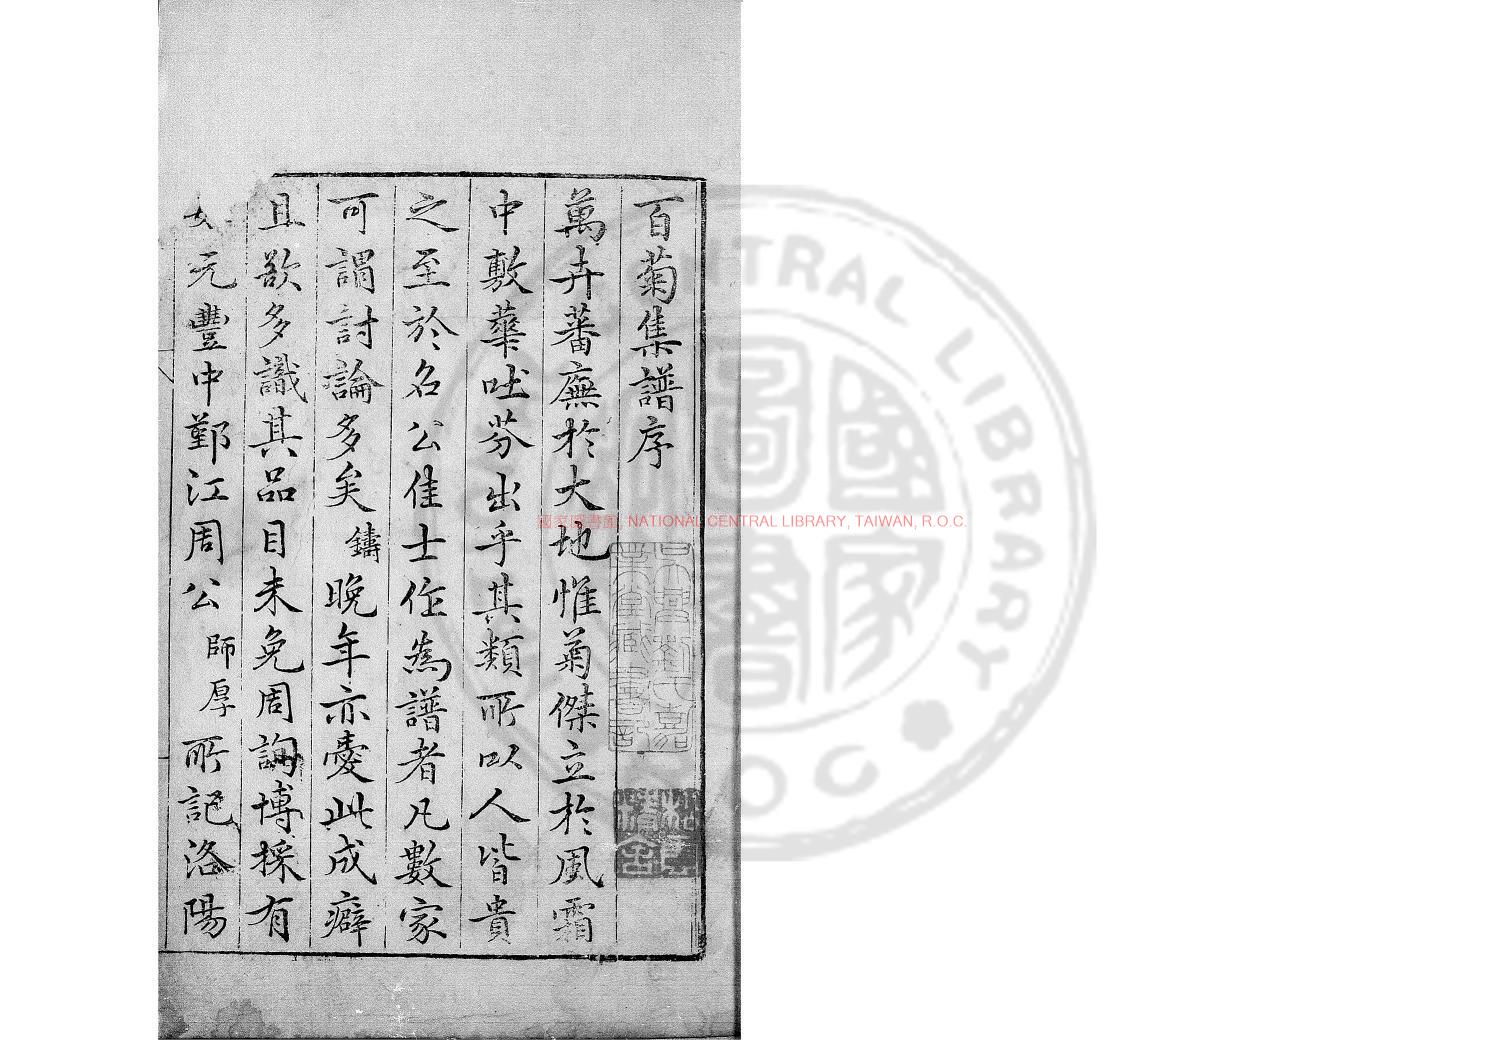 百菊集譜序
萬卉蕃廡於大地惟菊傑立於風霜
中敷華吐芬出乎其類所以人皆貴
之至於名公佳士作為譜者凡數家
可謂討論多矣鑄晚年亦愛此成癖
且欲多識其品目未免周詢博採有
如元豐中鄞江周公師厚所記洛陽
國家圖書館, NATIONAL CENTRAL LIBRARY, TAIWAN, R.O.C.